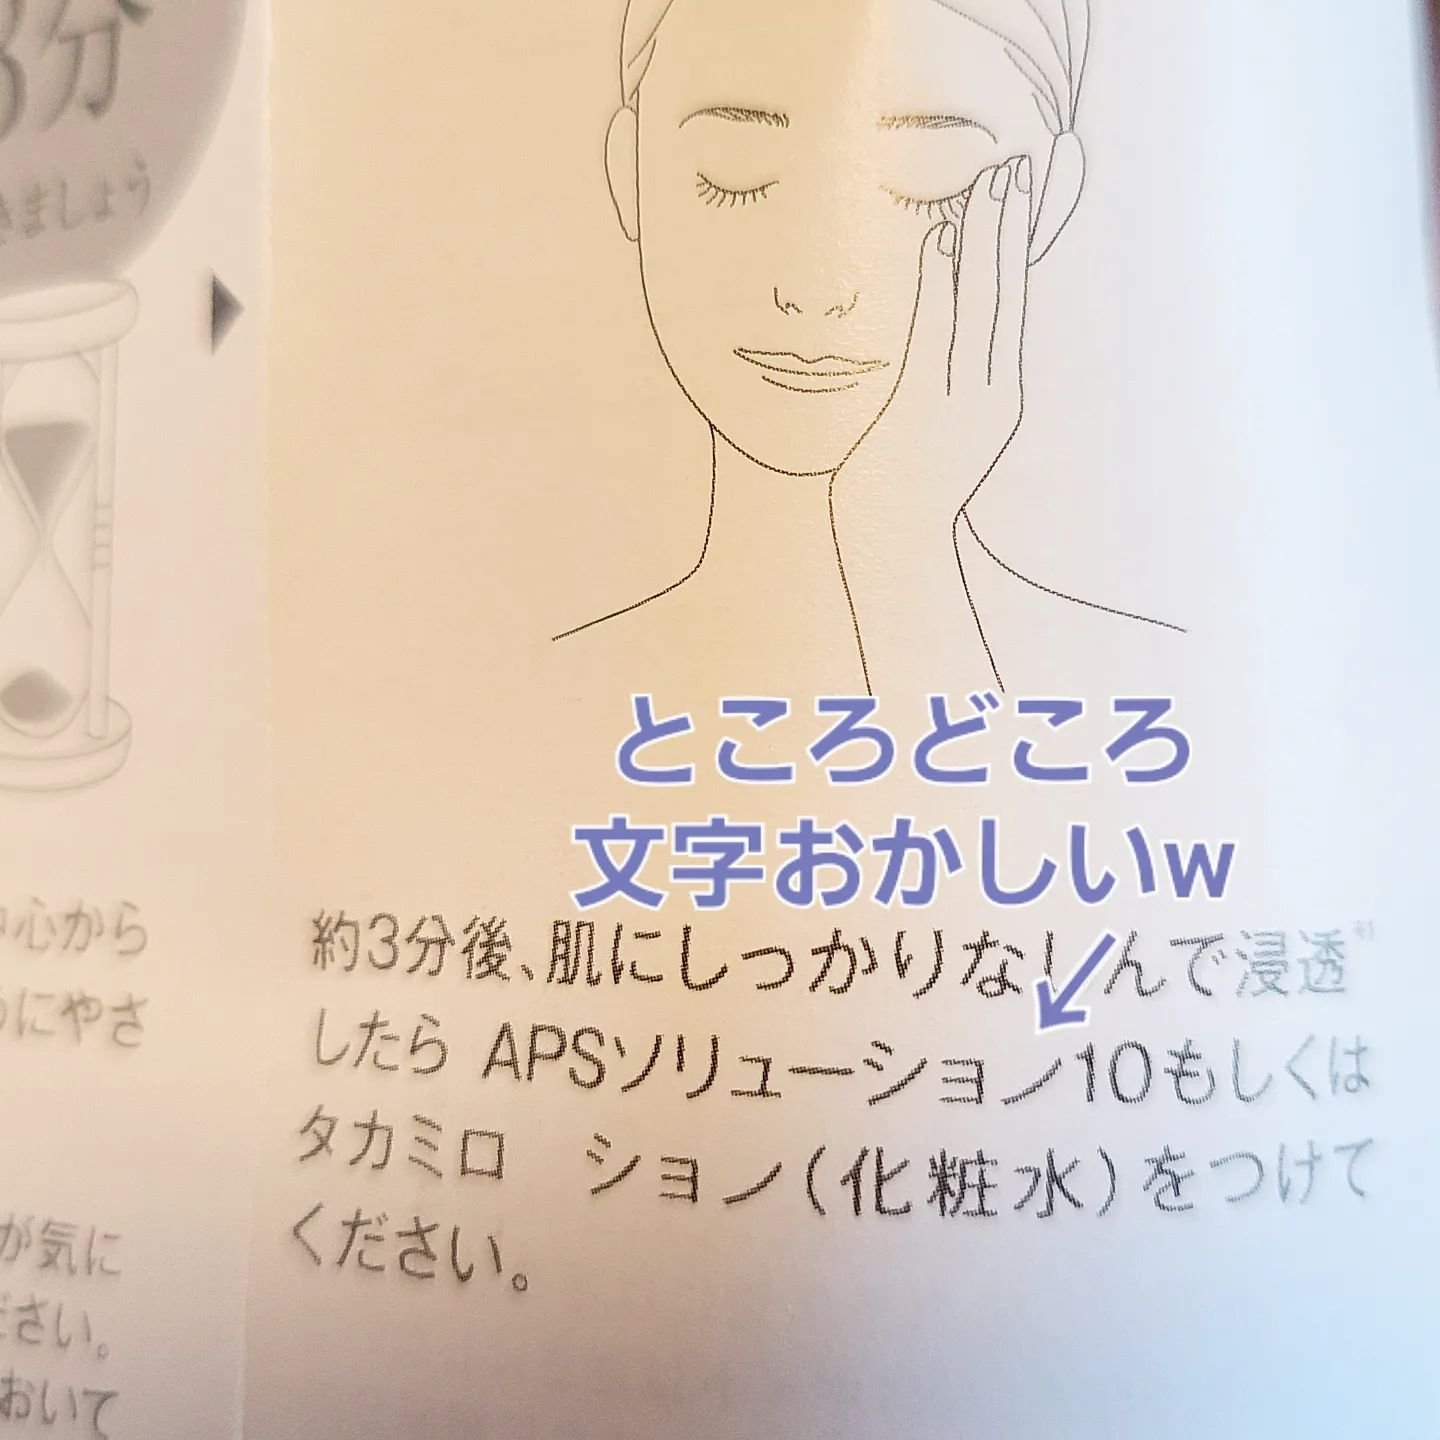 3分
きましょう
ところどころ
文字おかしいw
心から
うにやさ
が気に
ださい。
おいて
約3分後、肌にしっかりなじんで浸透※1
したら APSソリューショノ10もしくは
タカミロ　ショノ(化粧水)をつけて
ください。